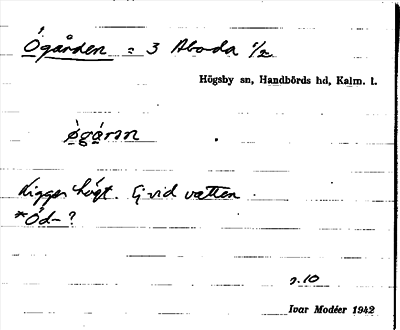 Ögården = 3 Aboda 1/2
Högsby sn, Handbörds hd, Kalm. l.
ø̀gåɾən
Ligger högt. Ej vid vatten.
*Öd- ?
s. 10
Ivar Modéer 1942